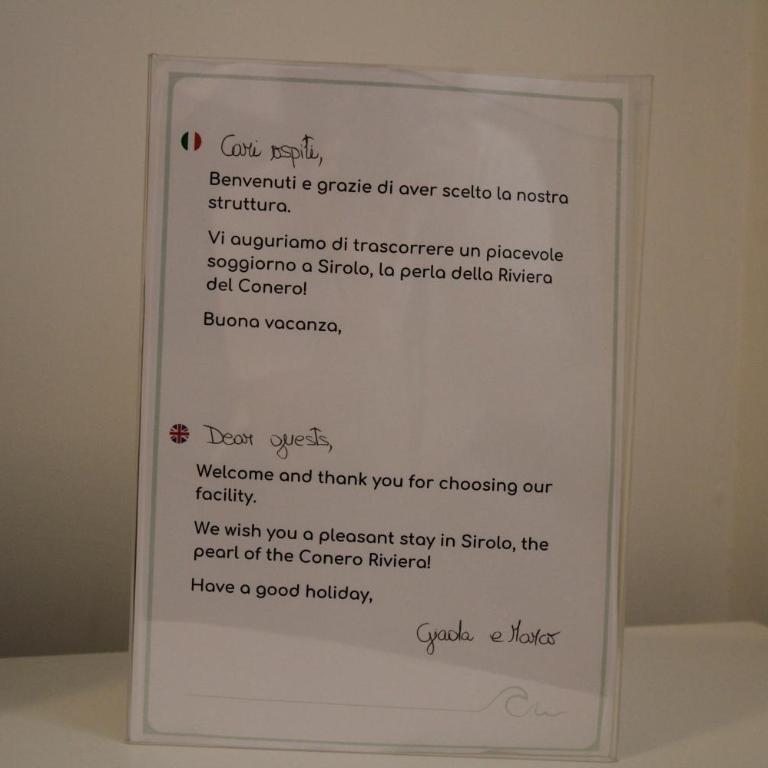 Cari ospiti,
Benvenuti e grazie di aver scelto la nostra
struttura.
Vi auguriamo di trascorrere un piacevole
soggiorno a Sirolo, la perla della Riviera
del Conero!
Buona vacanza,
Dear guests,
Welcome and thank you for choosing our
facility.
We wish you a pleasant stay in Sirolo, the
pearl of the Conero Riviera!
Have a good holiday,
e Marco